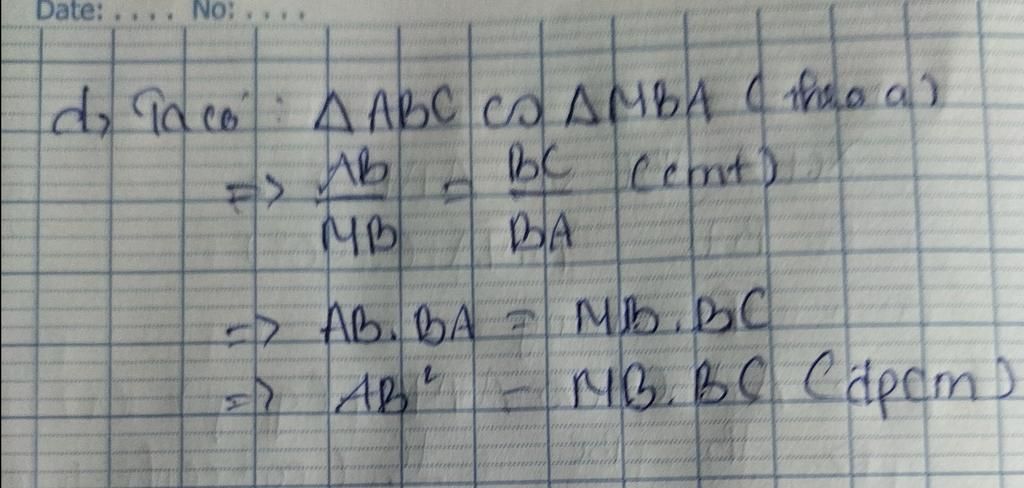 Date: .... No: ....
d, Ta có: Δ ABC ∽ Δ MBA (theo a)
=> AB/MB = BC/BA (cmt)
=> AB. BA = MB. BC
=> AB² = MB. BC (đpcm)